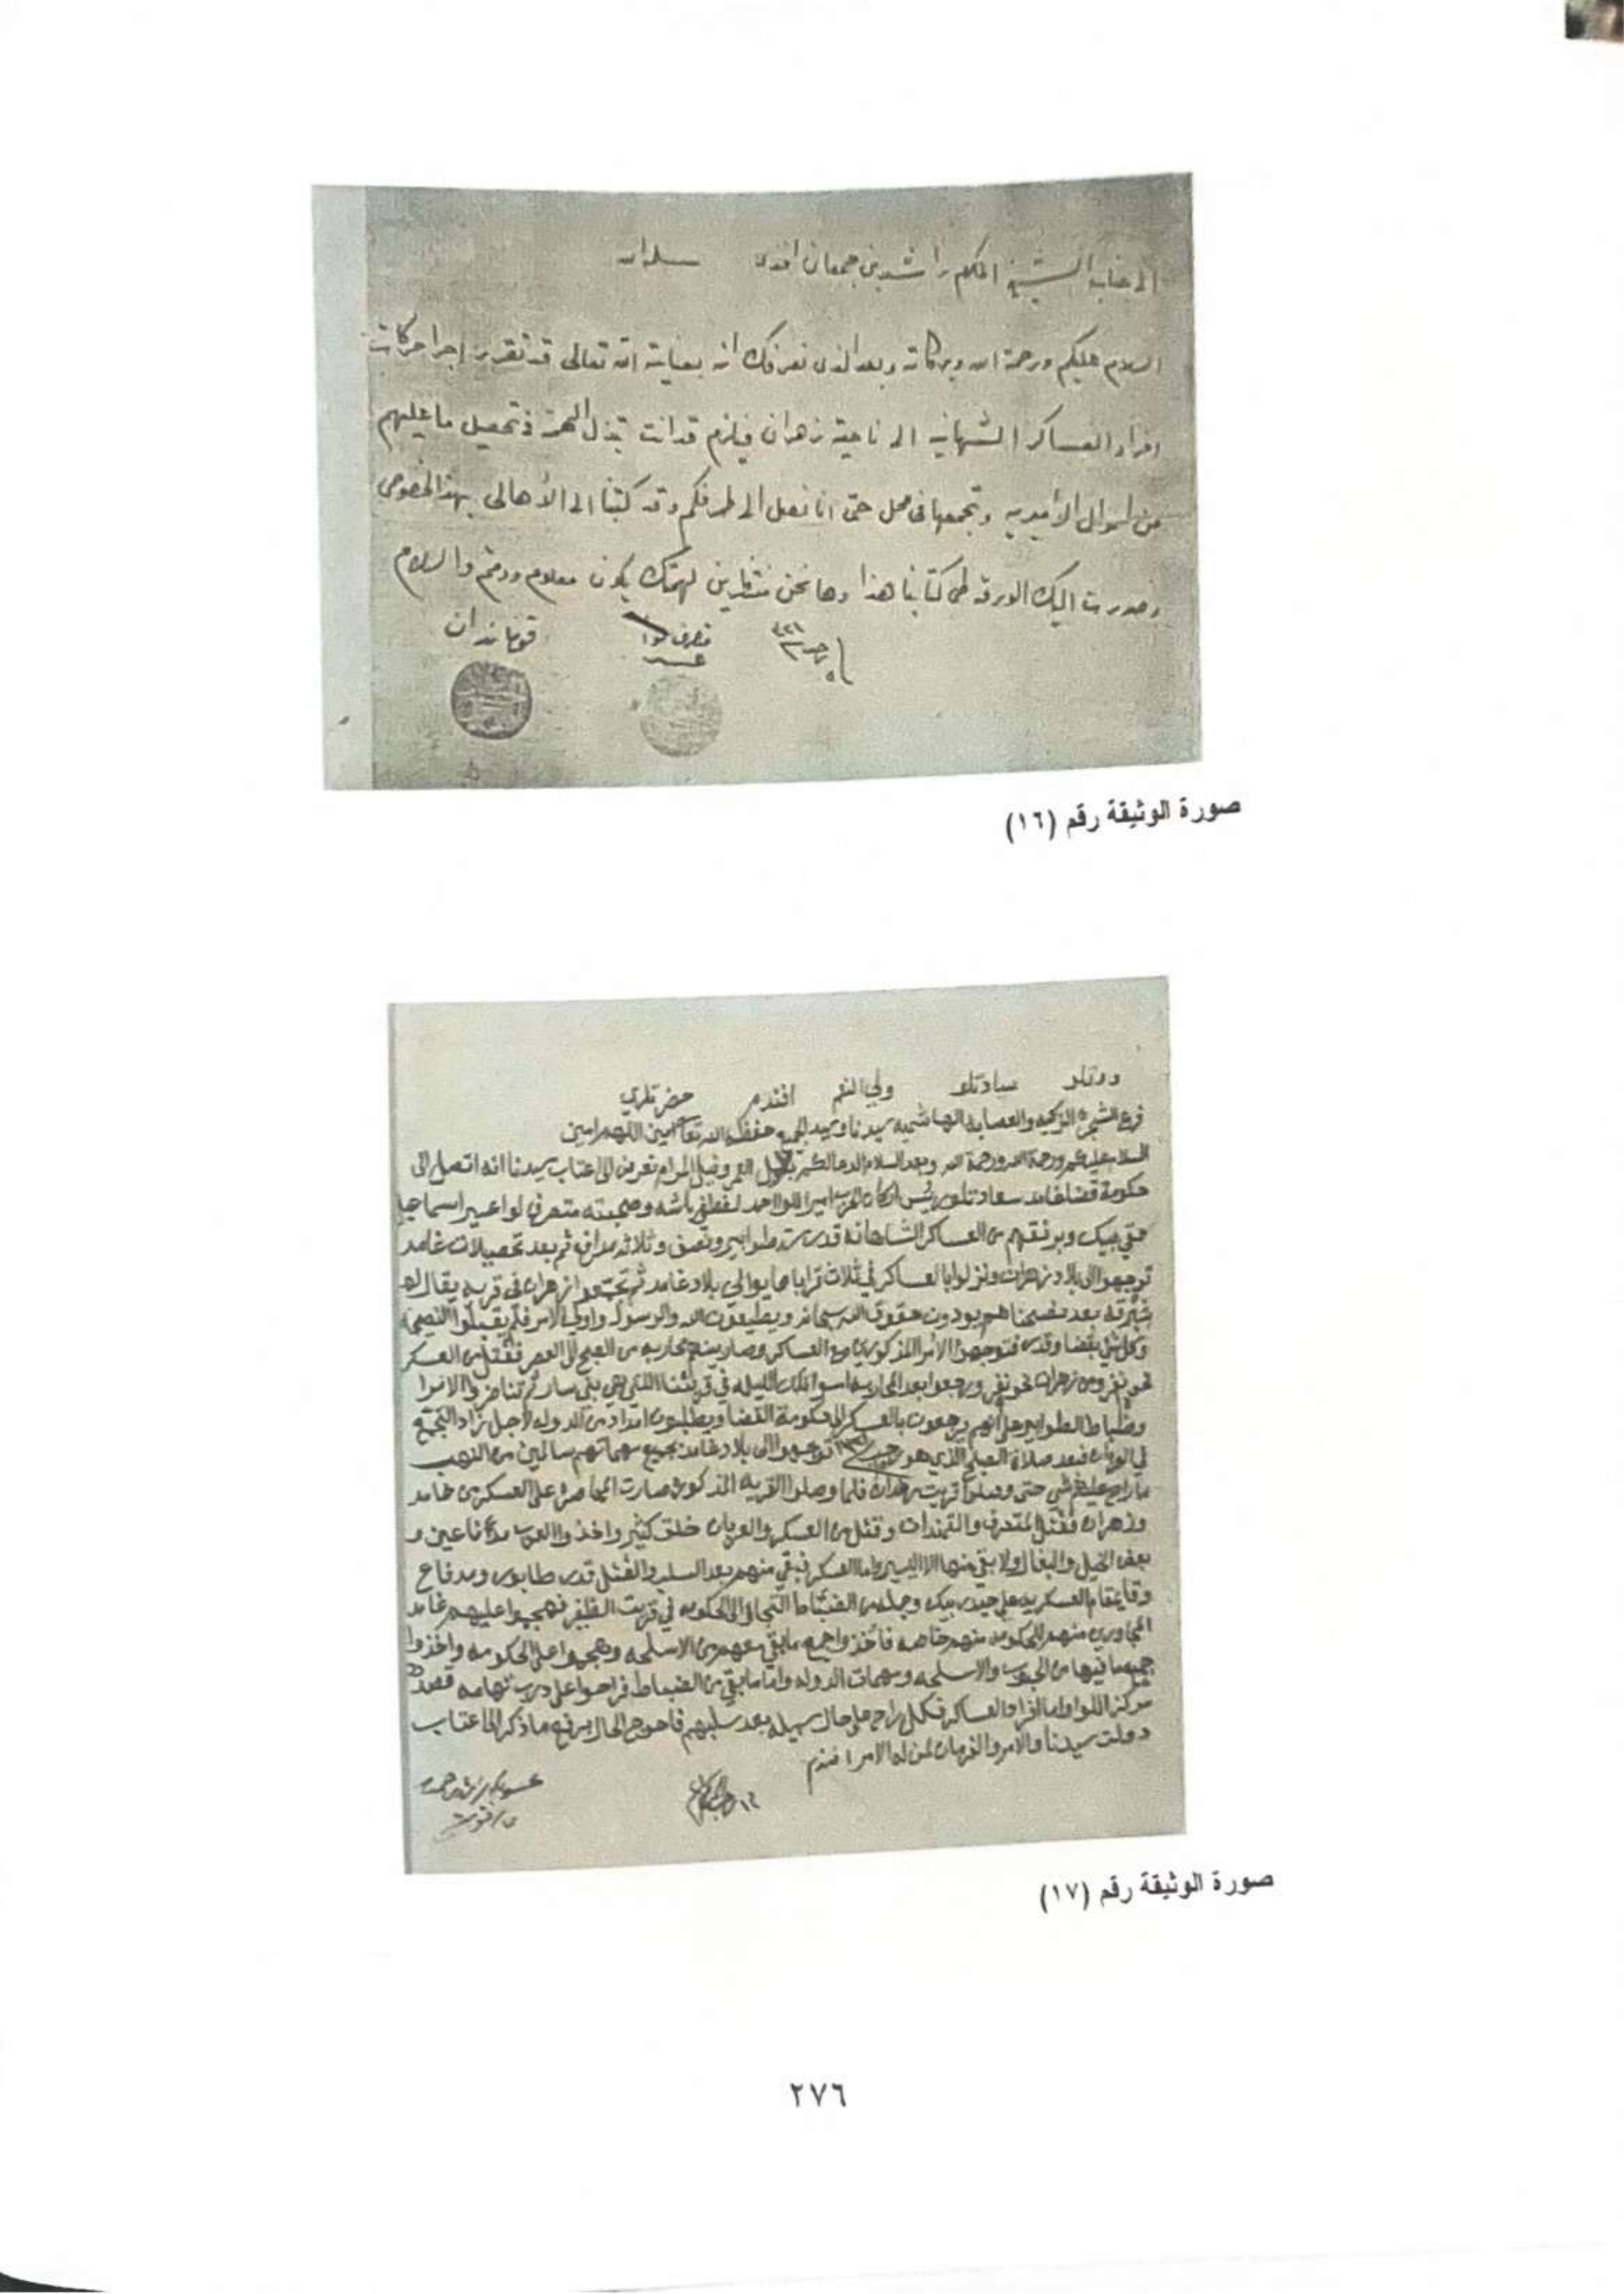 الى جناب الشيخ المكرم راشد بن جمعان افندى سلمه الله
السلام عليكم ورحمة الله وبركاته وبعد الذى نعرفك انه بعناية الله تعالى قد تقرر اجرا حركات
افراد العساكر الشهانيه الى ناحية زهران فيلزم قد انت تبذل الهمة فى تحصيل ما عليهم
من اموال الأميريه وتجمعها فى محل حتى انا نصل الى طرفكم وقد كتبنا الى الأهالى بهذا الخصوص
وصدرت اليك الورقة طى كتابنا هذا وها نحن منتظرين لهمتك يكون معلوم ودمتم والسلام
متصرف لوا قوماندان
عسير
صورة الوثيقة رقم (١٦)
دولتلو سيادتلو ولي النعم افندم حضرتلري
فرع الشجرة الزكيه والعصابة الهاشميه سيدنا وسيد الجميع حفظه الله تعالى امين اللهم امين
السلام عليكم ورحمة الله وبعد السلام العمر ونيل المرام نعرض الى اعتاب سيدنا انه اتصل الى
حكومة قضا غامد سعادتلو رئيس اركان الحرب امير اللوا احمد لطفي باشه وصحبته متصرف لوا عسير اسماعيل
حقي بيك وبرفقهم من العساكر الشاهانه قدر ستة طوابير ونصف وثلاثة مدافع ثم بعد تحصيلات غامد
توجهوا الى بلاد زهران ونزلوا بالعساكر في ثلاث قرايا مما يوالي بلاد غامد ثم تجتمعوا زهران في قريه يقال لها
شبرقه بعد نصحناهم يودون حقوق الله سبحانه ويطيعون الله والرسول واولي الامر فلم يقبلوا النصيحه
وكل شي بقضا وقدر فتوجهوا الامرا المذكورين مع العساكر وصار بينهم محاربه من الصبح الى العصر فقتل من العسكر
نحو نفر ومن زهران نحو نفر ورجعوا بعد المحاربه امسوا تلك الليله في قريتنا اللتي هي بني سار ثم تناظروا الامرا
وضباط الطوابير على انهم يرجعون بالعسكر الى حكومة القضا ويطلبون امداد من الدوله لاجل زاد التجمع
في العربان فبعد صلاة الصبح الذي هو توجهوا الى بلاد غامد بجميع مهماتهم سالمين من النهب
ما راح عليهم شي حتى وصلوا قرية رغدان فلما وصلوا القريه المذكوره صارت المحاصره على العسكر من غامد
وزهران فقتل المتصرف والقمندات وقتل من العسكر والعربان خلق كثير واخذوا العرب مدفاعين و
بعض الخيل والبغال ولا بقي منها الا اليسير واما العسكر فبقي منهم بعد السلب والقتل قدر طابور ومدفاع
وقايمقام العسكريه علي حيدر بيك وجمله من الضباط التجاوا الى الحكومه في قرية الظفير فهجموا عليهم غامد
المجاورين منهم للحكومه منهم خاصه فاخذوا جميع ما بقي معهم من الاسلحه وهجموا على الحكومه واخذوا
جميع ما فيها من الجيوب والاسلحه ومهمات الدوله واما ما بقي من الضباط فراحوا على درب تهامه قصدهم
مركز اللوا واما افراد العساكر فكل راح على حال سبيله بعد سلبهم فاحوج الحال برفع ما ذكر الى اعتاب
دولت سيدنا والامر والفرمان لمن له الامر افندم
صورة الوثيقة رقم (١٧)
٢٧٦